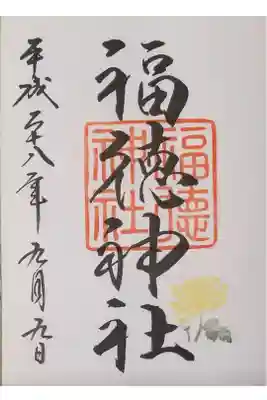 福徳神社
福徳神社
平成二十八年九月九日